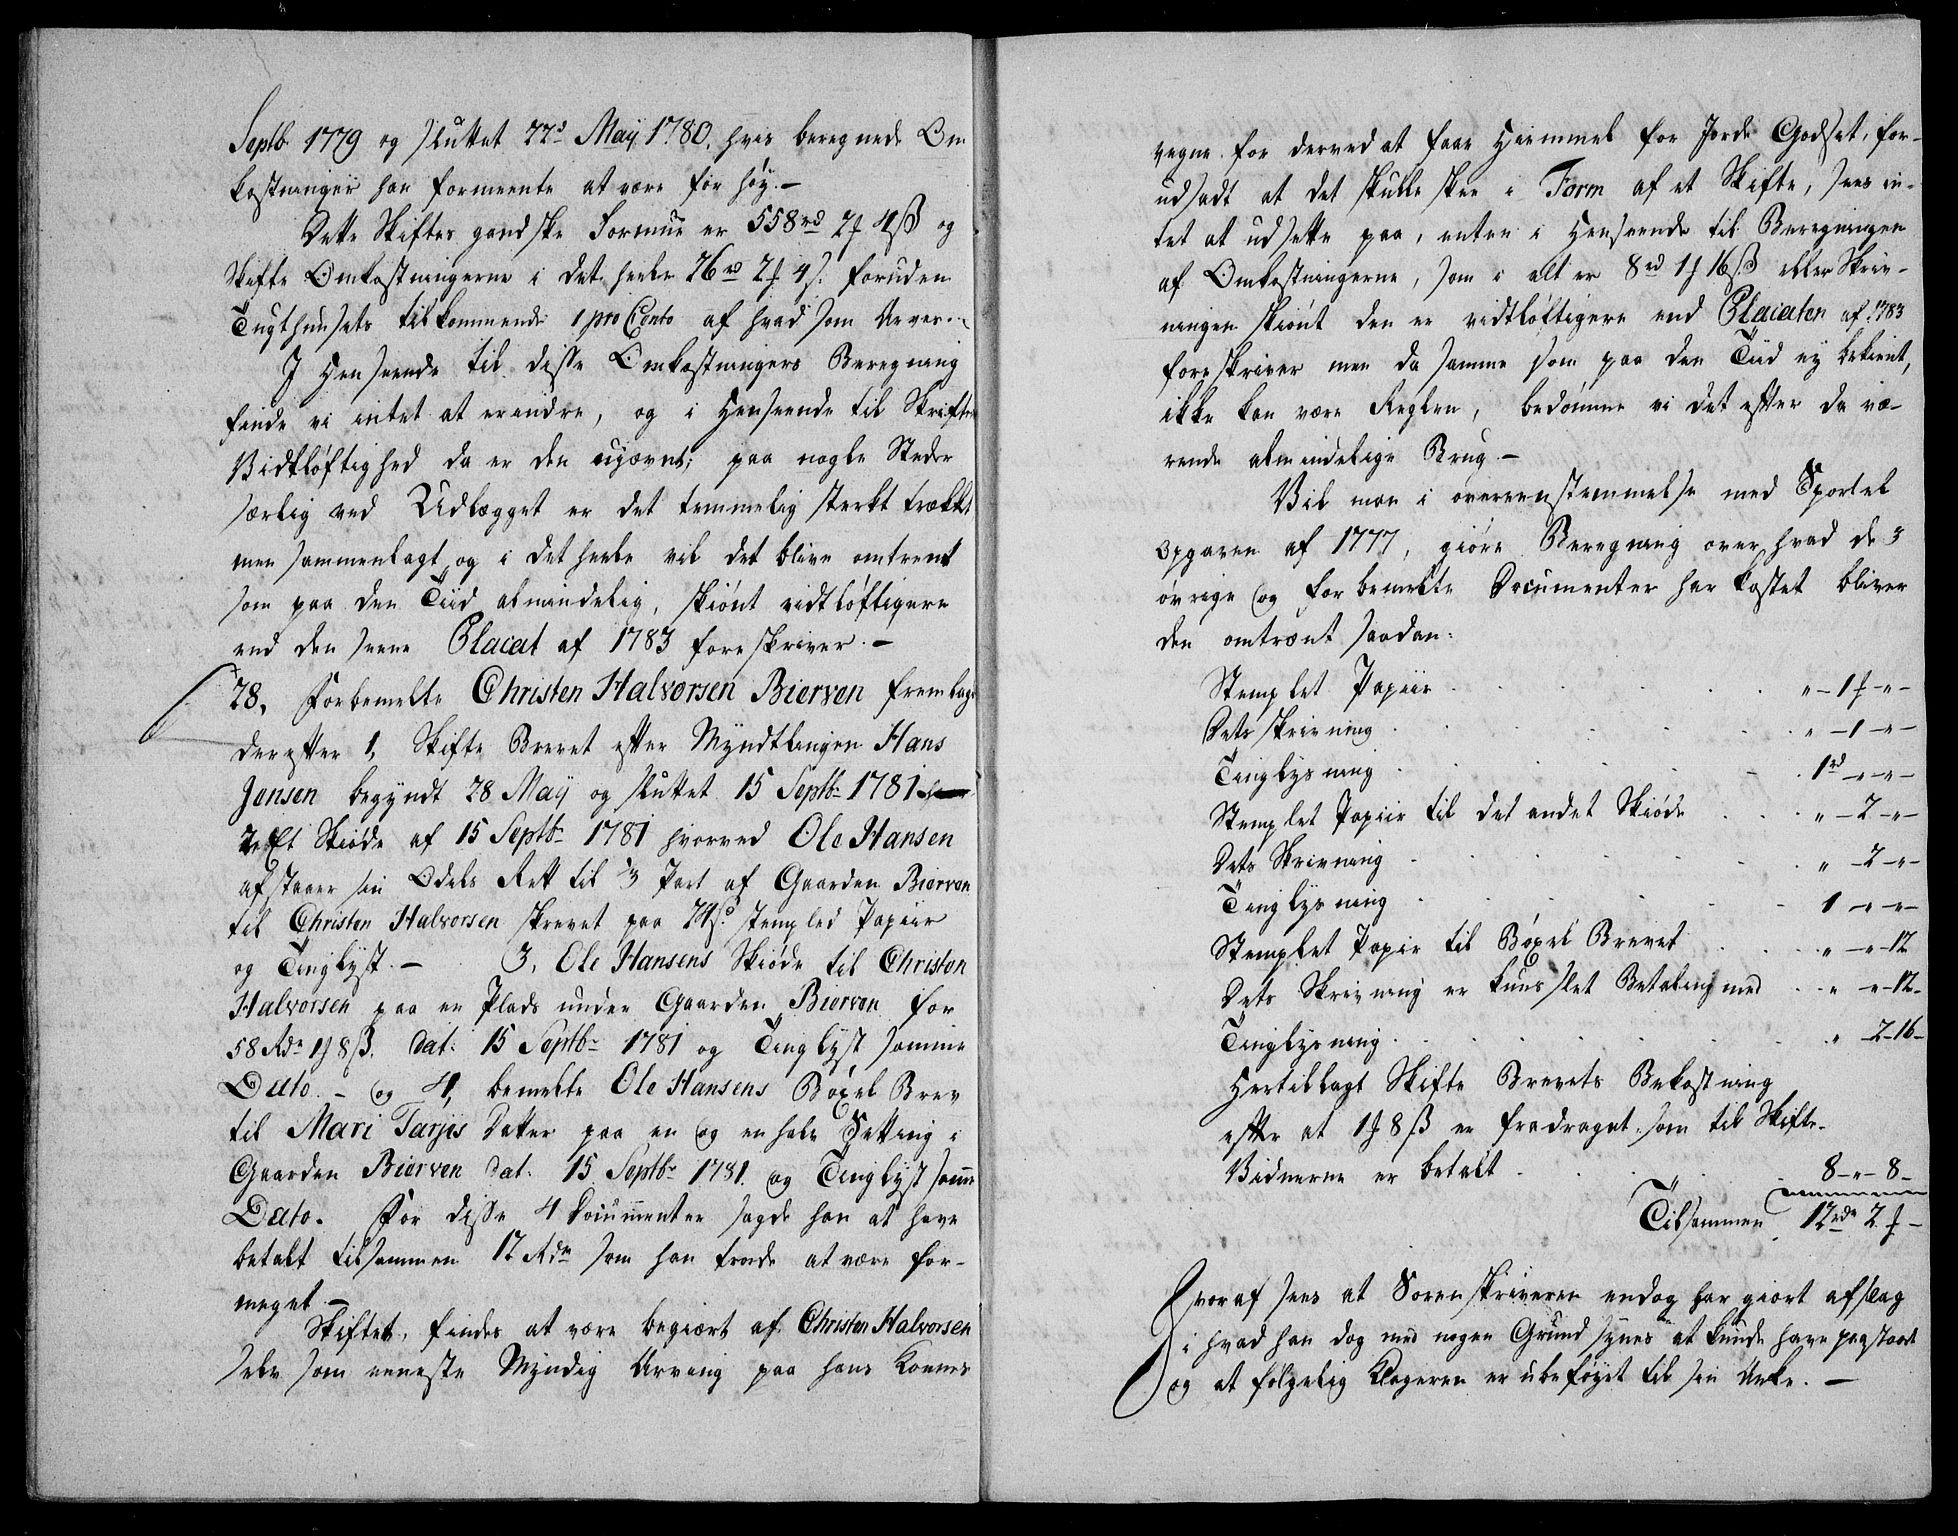 Septb 1779 og sluttet 22d May 1780. hvis beregnede Om
kostninger han formeente at være for høy.—
Dette Skiftes gandske Formue er 558rd 2f 4ß og
Skifte Omkostningerne i det heele 26rd 2f 4s. foruden
Tugthuusets tilkommende 1 pro Cento af hvad som Arves.—
I Henseende til disse Omkostningers Beregning
finde vi intet at erindre, og i Henseende til Skriftes
Vidtløftighed da er den ujævnt; paa nogle Steder
særlig ved Udlægget er det temmelig sterkt trækket
men sammenlagt og i det heele vil det blive omtrent
som paa den Tiid almindelig, skiønt vidtløftigere
end den seene Placat af 1783 foreskriver.—
28, Forbemelte Christen Halvorsen Bierven fremlagde
derefter 1, Skifte Brevet efter Myndtlingen Hans
Jensen begyndt 28 May og sluttet 15 Septbr 1781
2, Et Skiøde af 15 Septbr 1781 hvorved Ole Hansen
afstaaer sin Odels Rett til 1/3 Part af Gaarden Bierven
til Christen Halvorsen skrevet paa 24s. stempled Papiir
og Tinglyst.— 3, Ole Hansens Skiøde til Christen
Halvorsen paa en Plads under Gaarden Bierven for
58 Rdr 1f 8ß. Dat: 15 Septbr 1781 og Tinglyst samme
Dato.— og 4, bemelte Ole Hansens Bøxel Brev
til Mari Tarjis Datter paa en og en halv Setting i
Gaarden Bierven Dat. 15 Septbr 1781. og Tinglyst samme
Dato. For disse 4 Documenter sagde han at have
betalt tilsammen 12 Rdr som han troede at være for-
meget.—
Skiftet, findes at være begiært af Christen Halvorsen
selv som eeneste Myndig Arving paa hans Kones
vegne for derved at faae Hiemmel for Jorde Godset, for-
udsadt at det skulle skee i Form af et Skifte, sees in-
tet at udsette paa, enten i Henseende til Beregningen
af Omkostningerne, som i alt er 8rd 1f 16ß eller Skriv-
ningen skiønt den er vidtløftigere end Placaten af 1783
foreskriver men da samme som paa den Tiid ey bekient,
ikke kan være Reglen, bedømme vi det efter da væ-
rende almindelige Brug.—
Vil man i overeenstemmelse med Sportel
Opgaven af 1777, giøre Beregning over hvad de 3
øvrige og forbemelte Documenter har kostet bliver
den omtrent saadan:
Stemplet Papiir . . . " – 1f – " –
Dets skrivning . . . " – 1 – " –
Tinglysning . . . 1rd – " – " –
Stemplet Papiir til det andet Skiøde . . . " – 2 – " –
Dets Skrivning . . . " – 2 – " –
Tinglysning . . . 1 – " – " –
Stemplet Papir til Bøxel Brevet . . . " – " – 12
Dets Skrivning er kuns slet Betaling med . . " – " – 12 –
Tinglysning . . . " – 2 – 16 –
Hertillagt Skifte Brevets Bekostning
efter at 1f 8ß er fradraget som til Skifte-
Vidnerne er betalt . . . 8 – " – 8 –
Tilsammen 12rdr 2f –
Hvoraf sees at Sorenskriveren endog har giort afslag
i hvad han dog med nogen Grund synes at kunde have paastaaet
og at følgelig Klageren er ubeføyet til sin Anke.—